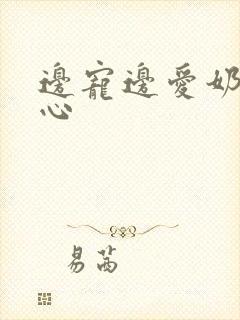 邊寵邊愛奶
心
易茜